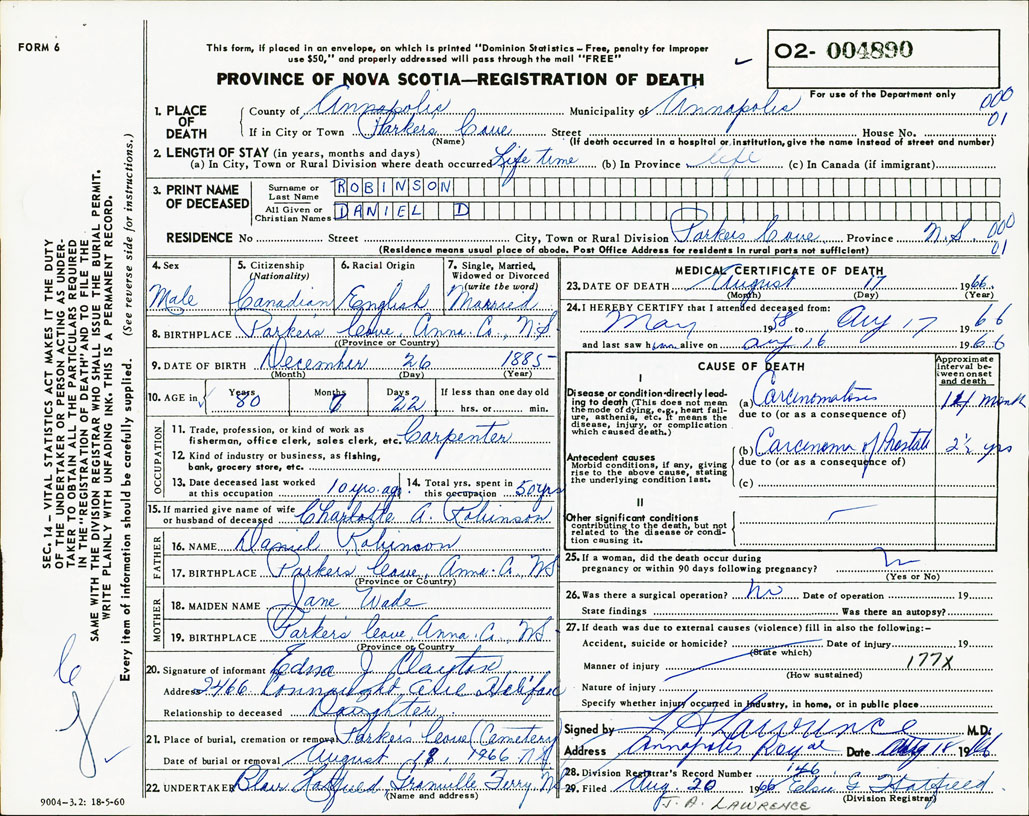 FORM 6
This form, if placed in an envelope, on which is printed "Dominion Statistics – Free, penalty for improper
use $50," and properly addressed will pass through the mail "FREE"
02- 004890
PROVINCE OF NOVA SCOTIA—REGISTRATION OF DEATH
For use of the Department only
1. PLACE OF DEATH
County of Annapolis Municipality of Annapolis 000
If in City or Town Parkers Cove Street House No. 01
(Name) (If death occurred in a hospital or institution, give the name instead of street and number)
2. LENGTH OF STAY (in years, months and days)
(a) In City, Town or Rural Division where death occurred Life time (b) In Province life (c) In Canada (if immigrant)
3. PRINT NAME OF DECEASED
Surname or Last Name ROBINSON
All Given or Christian Names DANIEL D
RESIDENCE No Street City, Town or Rural Division Parkers Cove Province N.S. 000
01
(Residence means usual place of abode. Post Office Address for residents in rural parts not sufficient)
4. Sex Male
5. Citizenship (Nationality) Canadian
6. Racial Origin English
7. Single, Married, Widowed or Divorced (write the word) Married
8. BIRTHPLACE Parker's Cove, Anna. Co., N.S
(Province or Country)
9. DATE OF BIRTH December 26 1885
(Month) (Day) (Year)
10. AGE in Years 80 Months Days 22 If less than one day old hrs. or min.
OCCUPATION
11. Trade, profession, or kind of work as
fisherman, office clerk, sales clerk, etc. Carpenter
12. Kind of industry or business, as fishing,
bank, grocery store, etc.
13. Date deceased last worked at this occupation 10 yrs. ago
14. Total yrs. spent in this occupation 50 yrs
15. If married give name of wife
or husband of deceased Charlotte A. Robinson
FATHER
16. NAME Daniel Robinson
17. BIRTHPLACE Parkers Cove, Anna. Co. NS
(Province or Country)
MOTHER
18. MAIDEN NAME Jane Wade
19. BIRTHPLACE Parker's Cove, Anna. Co., NS
(Province or Country)
20. Signature of informant Edna J. Clayton
Address 2466 Connaught Ave Halifax
Relationship to deceased Daughter
21. Place of burial, cremation or removal Parkers Cove Cemetery
Date of burial or removal August 18, 1966 N.S.
22. UNDERTAKER Blair Hatfield Granville Ferry NS
(Name and address)
MEDICAL CERTIFICATE OF DEATH
23. DATE OF DEATH August 17 1966
(Month) (Day) (Year)
24. I HEREBY CERTIFY that I attended deceased from:
May 1958 to Aug 17 1966
and last saw him alive on Aug 16 1966
CAUSE OF DEATH
Approximate interval between onset and death
I
Disease or condition directly leading to death (This does not mean the mode of dying, e.g., heart failure, asthenia, etc. It means the disease, injury, or complication which caused death.)
(a) Carcinomatosis month
due to (or as a consequence of)
Antecedent causes
Morbid conditions, if any, giving rise to the above cause, stating the underlying condition last.
(b) Carcinoma of Prostate 2½ yrs
due to (or as a consequence of)
(c)
II
Other significant conditions
contributing to the death, but not related to the disease or condition causing it.
25. If a woman, did the death occur during
pregnancy or within 90 days following pregnancy?
(Yes or No)
26. Was there a surgical operation? No Date of operation 19
State findings Was there an autopsy?
27. If death was due to external causes (violence) fill in also the following:–
Accident, suicide or homicide? Date of injury 19
(State which)
Manner of injury 177X
(How sustained)
Nature of injury
Specify whether injury occurred in industry, in home, or in public place
Signed by Lawrence M.D.
Address Annapolis Royal Date Aug 18 1966
28. Division Registrar's Record Number 146
29. Filed Aug. 20 1966 Elsie G Hatfield
(Division Registrar)
J. A. LAWRENCE
SEC. 14 – VITAL STATISTICS ACT MAKES IT THE DUTY
OF THE UNDERTAKER OR PERSON ACTING AS UNDERTAKER
TO OBTAIN ALL THE PARTICULARS REQUIRED
IN THE "REGISTRATION OF DEATH" AND TO FILE THE
SAME WITH THE DIVISION REGISTRAR WHO SHALL ISSUE THE BURIAL PERMIT.
WRITE PLAINLY WITH UNFADING INK. THIS IS A PERMANENT RECORD.
Every item of information should be carefully supplied. (See reverse side for instructions.)
9004–3.2: 18-5-60